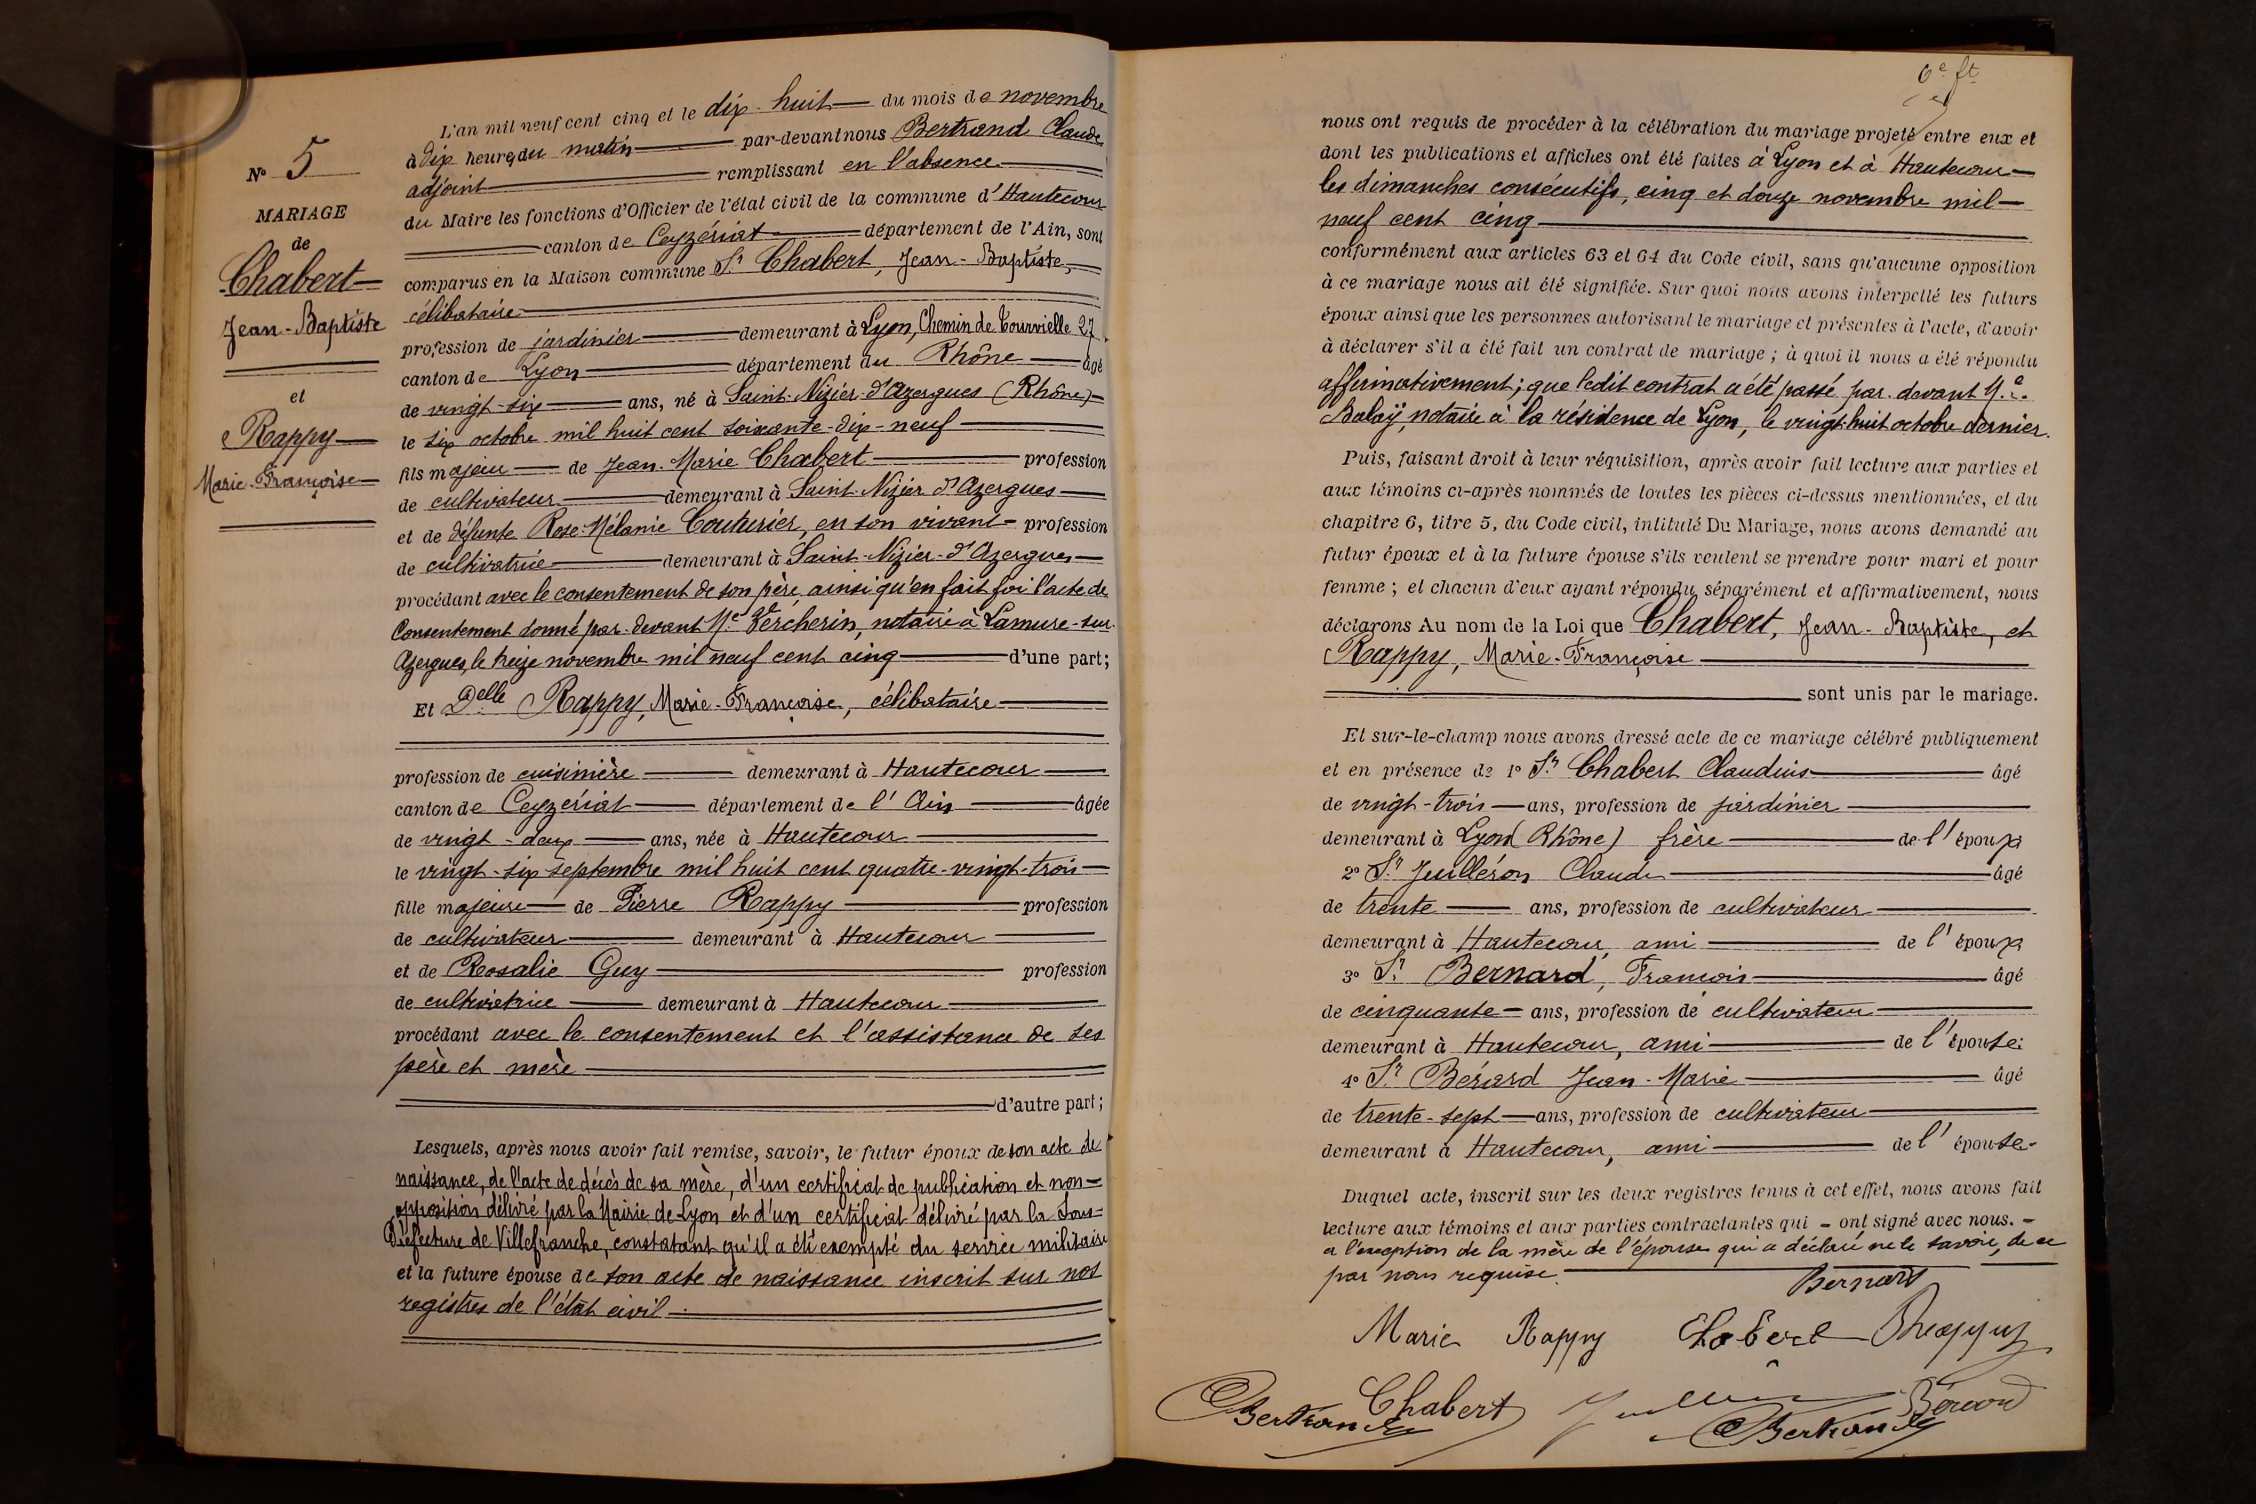 N° 5
MARIAGE
de
Chabert
Jean-Baptiste
et
Rappy
Marie-Françoise
L'an mil neuf cent cinq et le dix-huit du mois de novembre
à dix heures du matin par-devant nous Bertrand Claude
adjoint remplissant en l'absence
du Maire les fonctions d'Officier de l'état civil de la commune d'Hautecour
canton de Ceyzériat département de l'Ain, sont
comparus en la Maison commune Sr Chabert, Jean-Baptiste,
célibataire
profession de jardinier demeurant à Lyon, Chemin de Tourvielle 27
canton de Lyon département du Rhône âgé
de vingt-six ans, né à Saint-Nizier-d'Azergues (Rhône)
le six octobre mil huit cent soixante-dix-neuf
fils majeur de Jean-Marie Chabert profession
de cultivateur demeurant à Saint-Nizier d'Azergues
et de défunte Rose-Mélanie Couturier, en son vivant profession
de cultivatrice demeurant à Saint-Nizier-d'Azergues
procédant avec le consentement de son père, ainsi qu'en fait foi l'acte de
Consentement donné par-devant Me Vercherin, notaire à Lamure-sur-
Azergues, le treize novembre mil neuf cent cinq d'une part;
Et Delle Rappy, Marie-Françoise, célibataire
profession de cuisinière demeurant à Hautecour
canton de Ceyzériat département de l'Ain âgée
de vingt-deux ans, née à Hautecour
le vingt-six septembre mil huit cent quatre-vingt-trois
fille majeure de Pierre Rappy profession
de cultivateur demeurant à Hautecour
et de Rosalie Guy profession
de cultivatrice demeurant à Hautecour
procédant avec le consentement et l'assistance de ses
père et mère
d'autre part;
Lesquels, après nous avoir fait remise, savoir, le futur époux de son acte de
naissance, de l'acte de décès de sa mère, d'un certificat de publication et non-
opposition délivré par la Mairie de Lyon et d'un certificat délivré par la Sous-
Préfecture de Villefranche, constatant qu'il a été exempté du service militaire
et la future épouse de son acte de naissance inscrit sur nos
registres de l'état civil
6e ft
nous ont requis de procéder à la célébration du mariage projeté entre eux et
dont les publications et affiches ont été faites à Lyon et à Hautecour
les dimanches consécutifs, cinq et douze novembre mil
neuf cent cinq
conformément aux articles 63 et 64 du Code civil, sans qu'aucune opposition
à ce mariage nous ait été signifiée. Sur quoi nous avons interpellé les futurs
époux ainsi que les personnes autorisant le mariage et présentes à l'acte, d'avoir
à déclarer s'il a été fait un contrat de mariage ; à quoi il nous a été répondu
affirmativement; que ledit contrat a été passé par-devant Me
Balaÿ, notaire à la résidence de Lyon, le vingt-huit octobre dernier.
Puis, faisant droit à leur réquisition, après avoir fait lecture aux parties et
aux témoins ci-après nommés de toutes les pièces ci-dessus mentionnées, et du
chapitre 6, titre 5, du Code civil, intitulé Du Mariage, nous avons demandé au
futur époux et à la future épouse s'ils veulent se prendre pour mari et pour
femme ; et chacun d'eux ayant répondu séparément et affirmativement, nous
déclarons Au nom de la Loi que Chabert, Jean-Baptiste, et
Rappy, Marie-Françoise
sont unis par le mariage.
Et sur-le-champ nous avons dressé acte de ce mariage célébré publiquement
et en présence de 1° Sr Chabert Claudius âgé
de vingt-trois ans, profession de jardinier
demeurant à Lyon (Rhône) frère de l'époux
2° Sr Juilléron Claude âgé
de trente ans, profession de cultivateur
demeurant à Hautecour, ami de l'époux
3° Sr Bernard, François âgé
de cinquante ans, profession de cultivateur
demeurant à Hautecour, ami de l'épouse
4° Sr Bérard Jean-Marie âgé
de trente-sept ans, profession de cultivateur
demeurant à Hautecour, ami de l'épouse
Duquel acte, inscrit sur les deux registres tenus à cet effet, nous avons fait
lecture aux témoins et aux parties contractantes qui ont signé avec nous.
a l'exception de la mère de l'épouse qui a déclaré ne le savoir, de ce
par nous requise.
Bernard
Marie Rappy Chabert Rappy
Chabert Bérard
Bertrand Bertrand